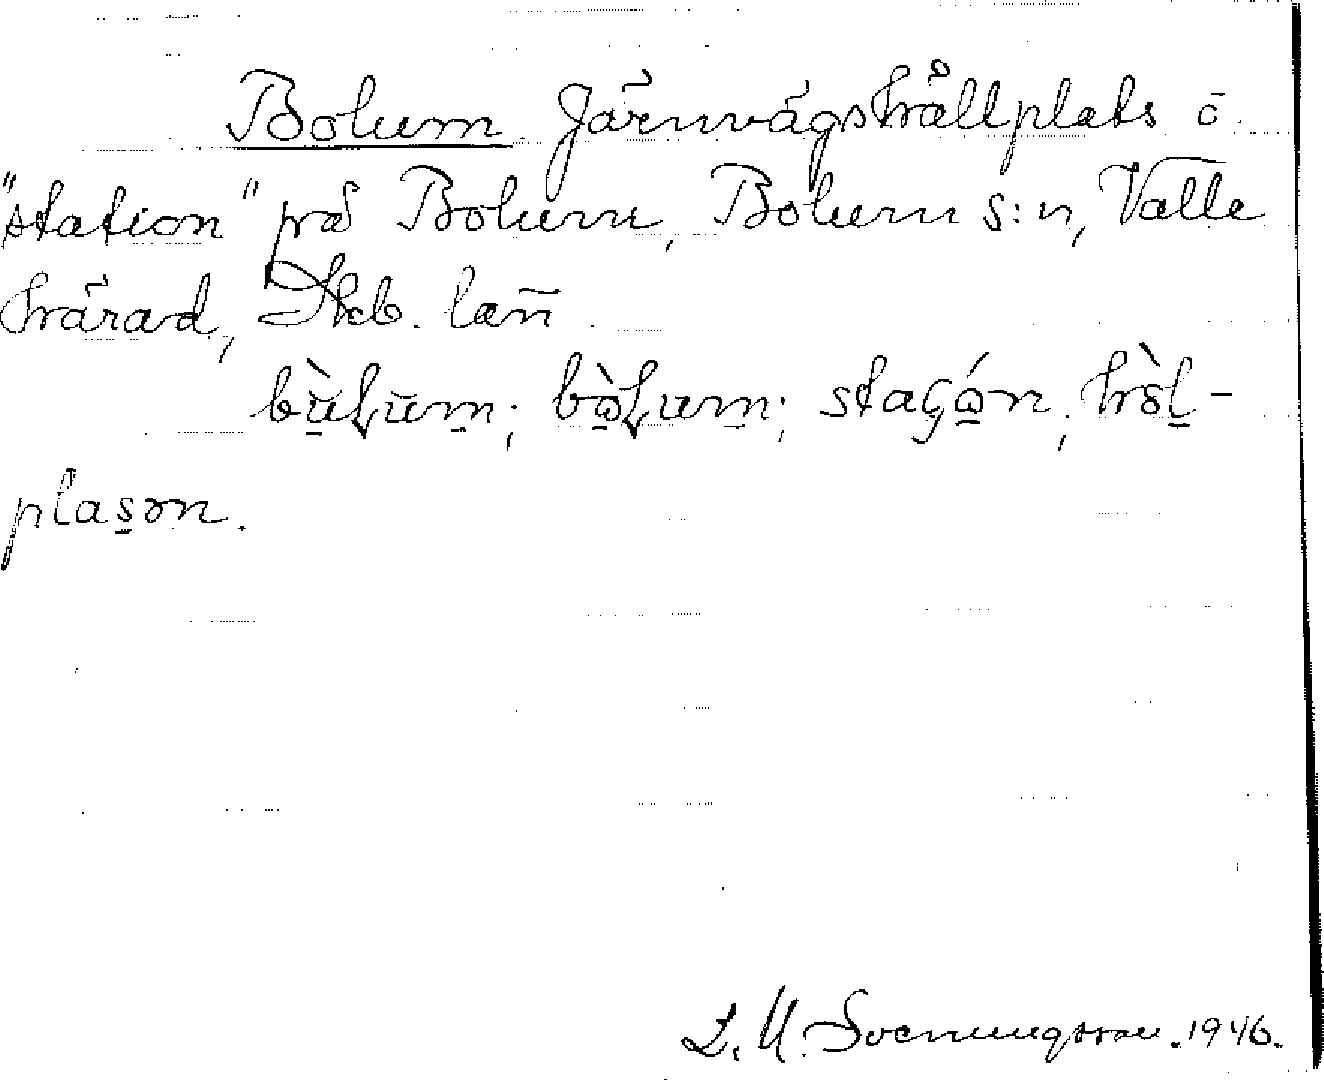 Bolum Järnvägshållplats o.
"station" på Bolum, Bolum s:n, Valle
härad, Skb. län.
bùłum; bòłum; staςón; hòl-
plasən.
L. U. Svenungsson. 1946.